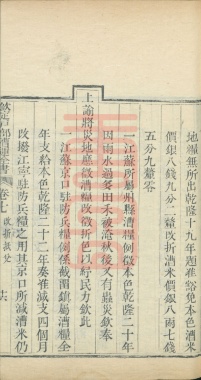 地糧無所出乾隆十九年題准豁免本色漕米
價銀八錢九分二釐改折漕米價銀八兩七錢
五分九釐零
一江蘇所屬州縣漕糧例徵本色乾隆二十年
因雨水過多田禾被淹秋後又有蟲災欽奉
上諭將災地應徵漕糧改徵折色以紓民力欽此
一江蘇京口駐防兵糧例係截留鎮屬漕糧全
年支給本色乾隆二十二年奏准減支四個月
改撥江寧駐防兵糧之用其京口所減漕米仍
卷七
改折抵兌